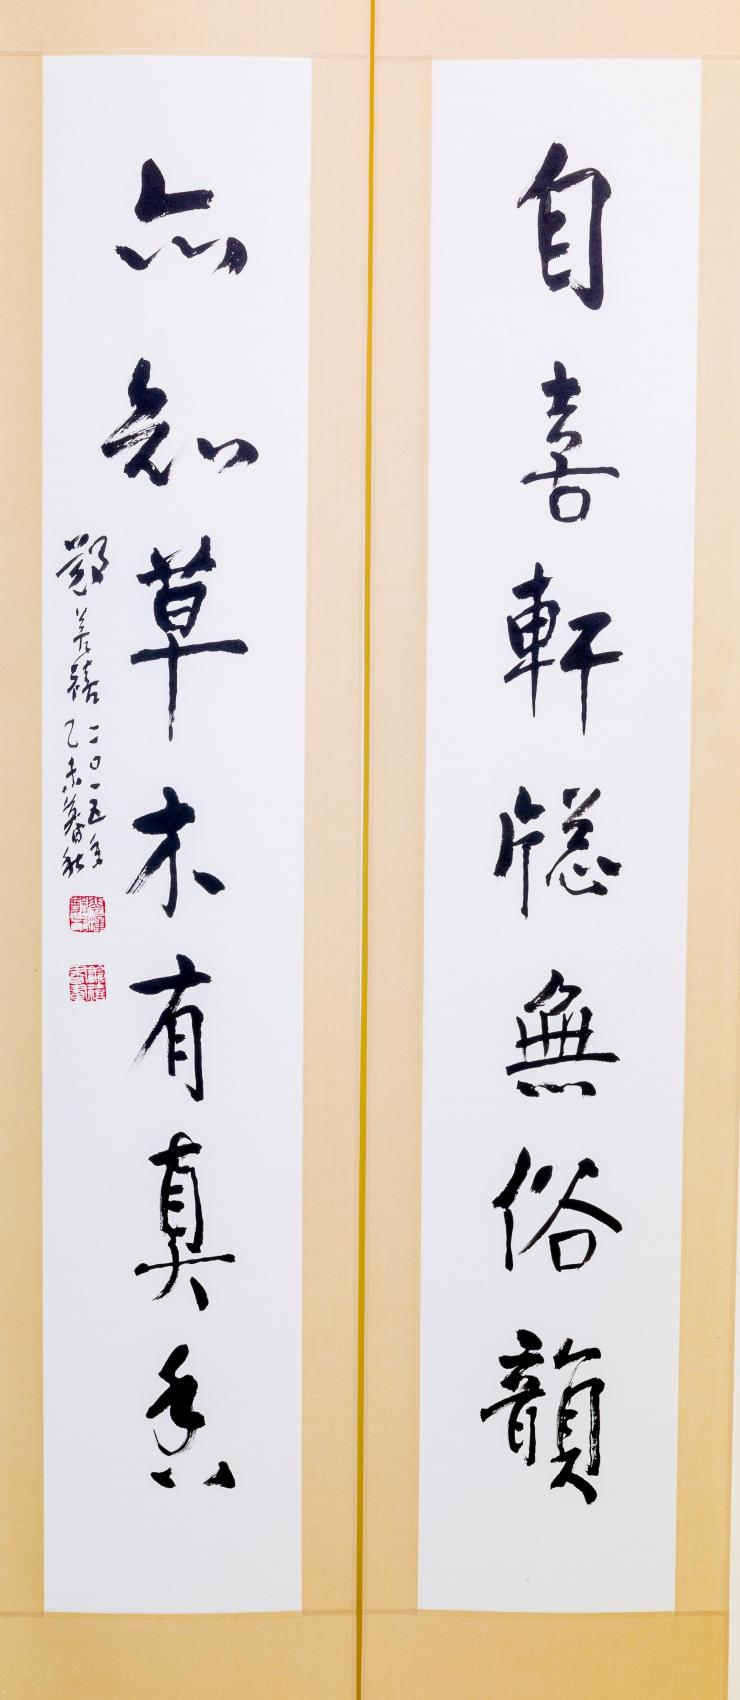 自喜軒牎無俗韻
亦知草木有真香
鄭善禧 二〇一五年
乙未暮秋